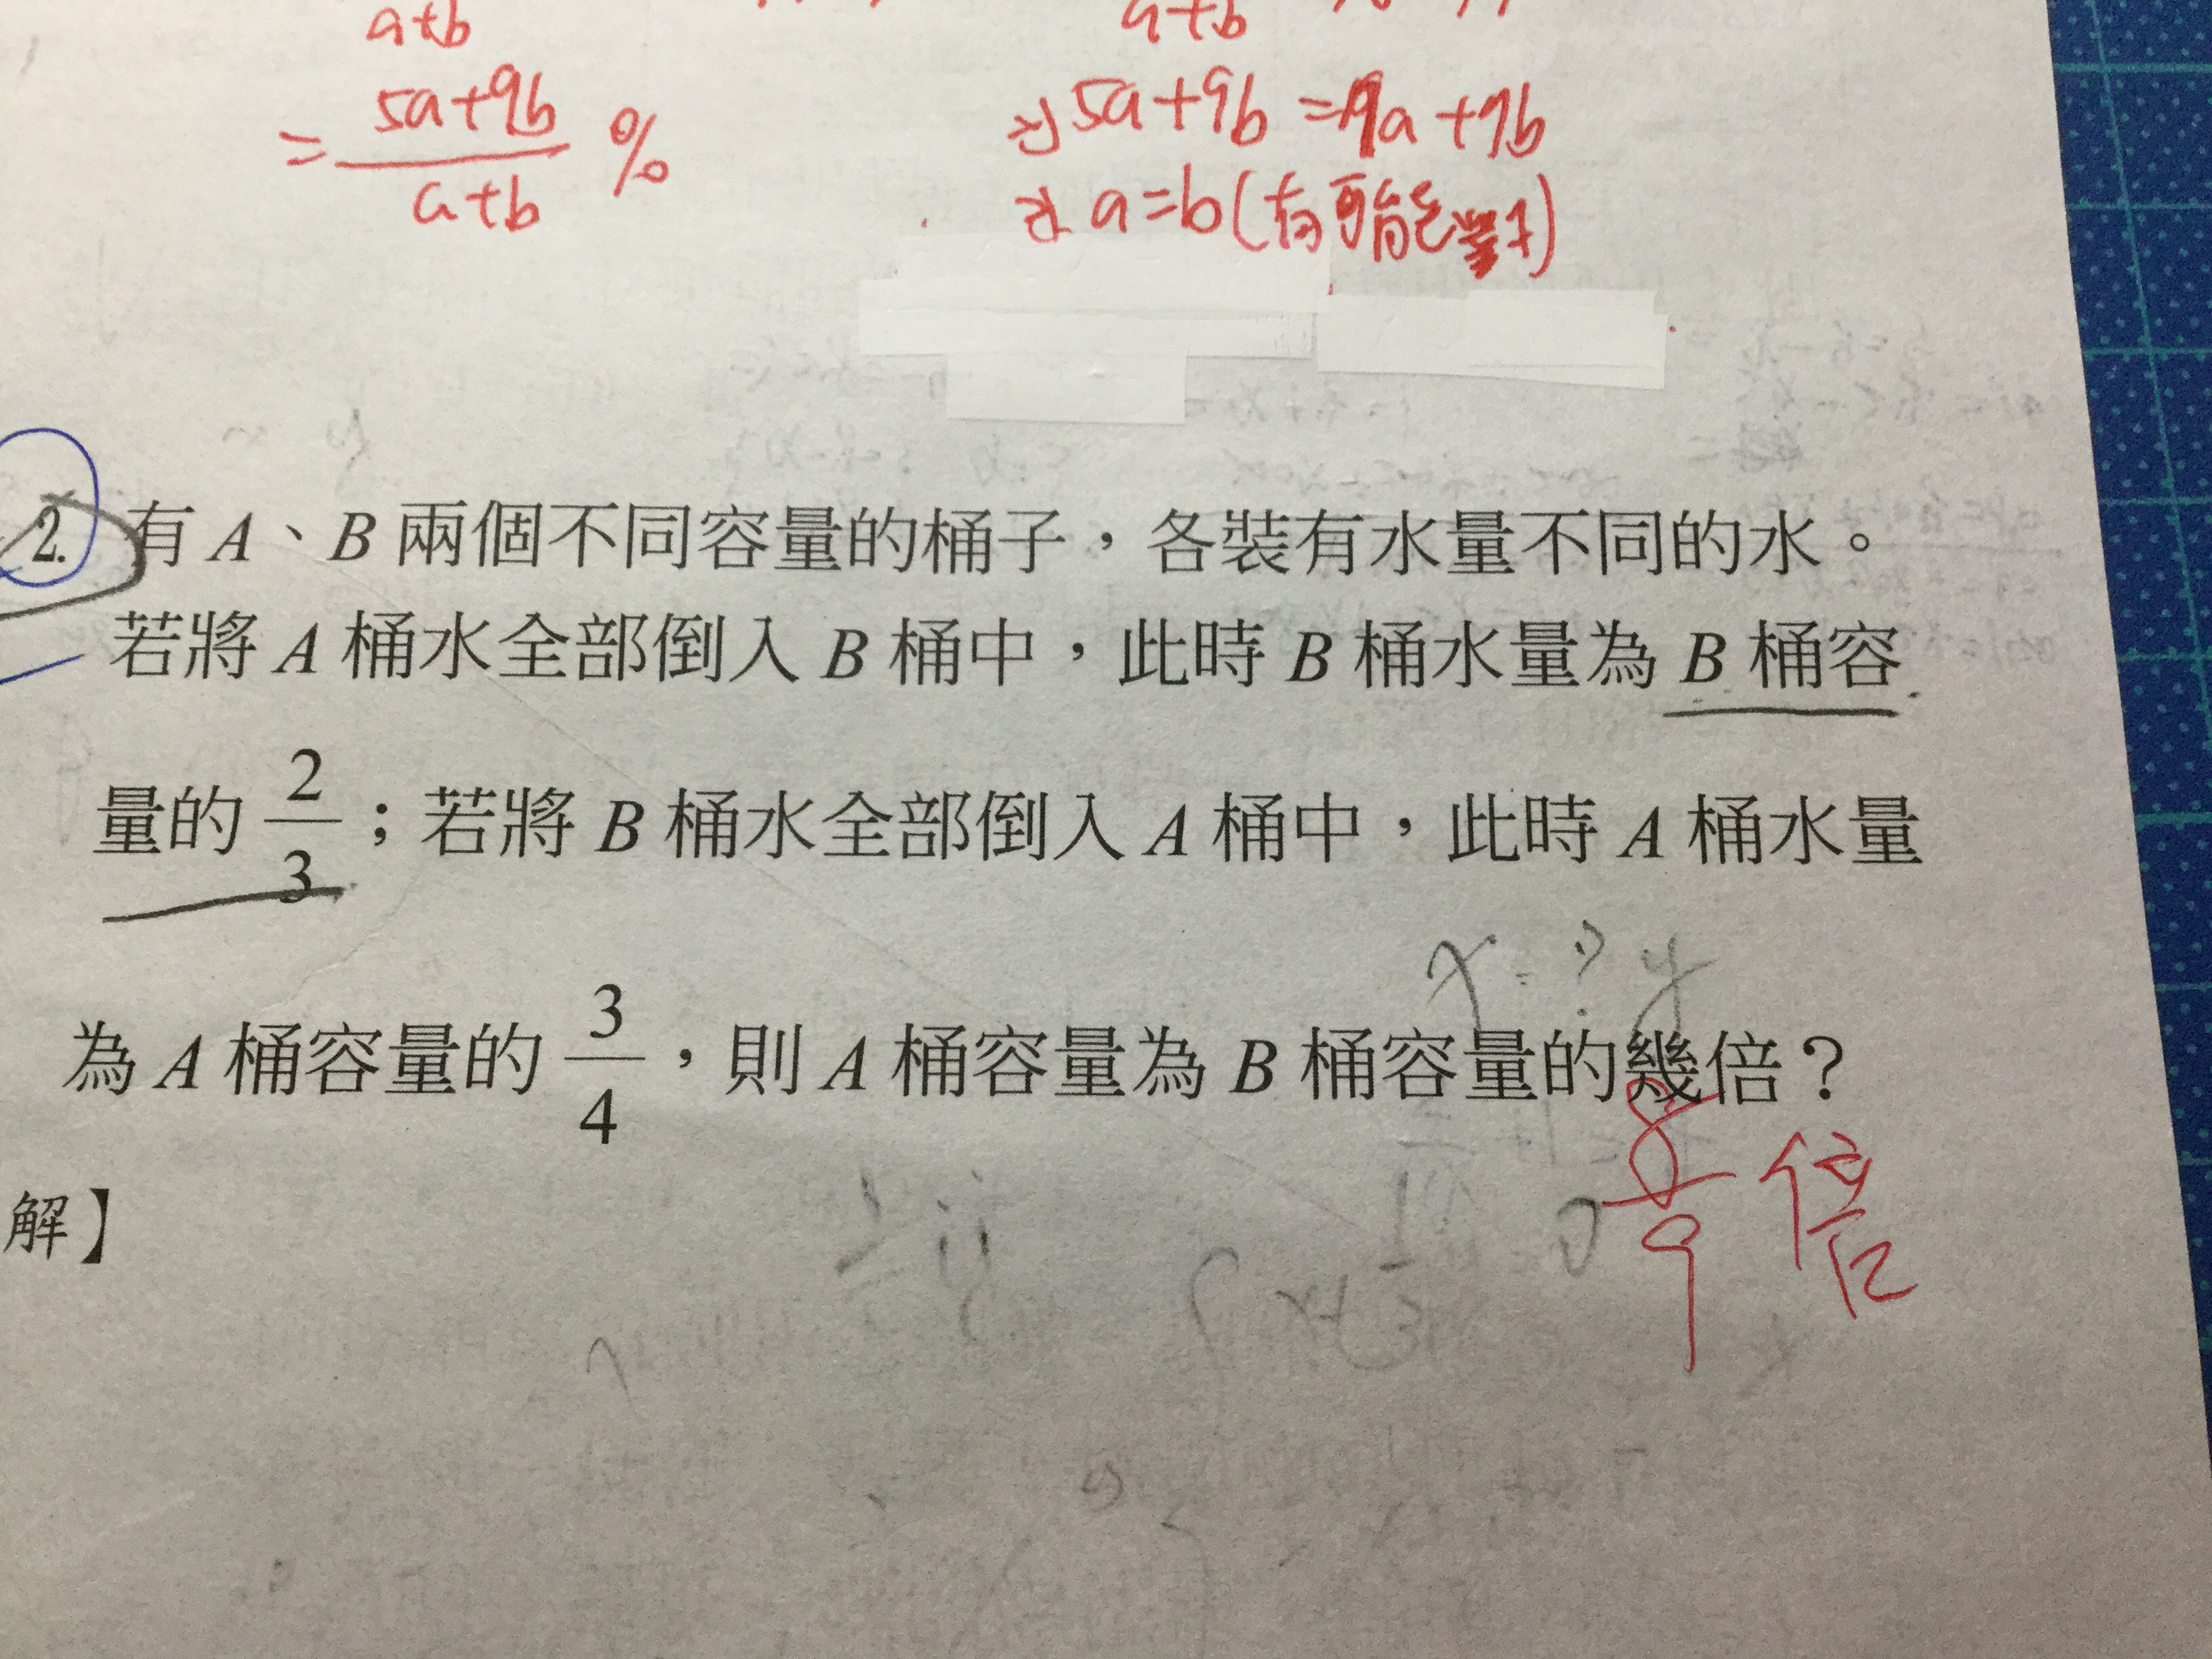 a+b a+b
= 5a+9b / a+b % ⇒ 5a+9b = 9a+9b
⇒ a=b(有可能對)
2. 有 A、B 兩個不同容量的桶子，各裝有水量不同的水。
若將 A 桶水全部倒入 B 桶中，此時 B 桶水量為 B 桶容
量的 2/3；若將 B 桶水全部倒入 A 桶中，此時 A 桶水量
x=?y
為 A 桶容量的 3/4，則 A 桶容量為 B 桶容量的幾倍？
8/9 倍
解】